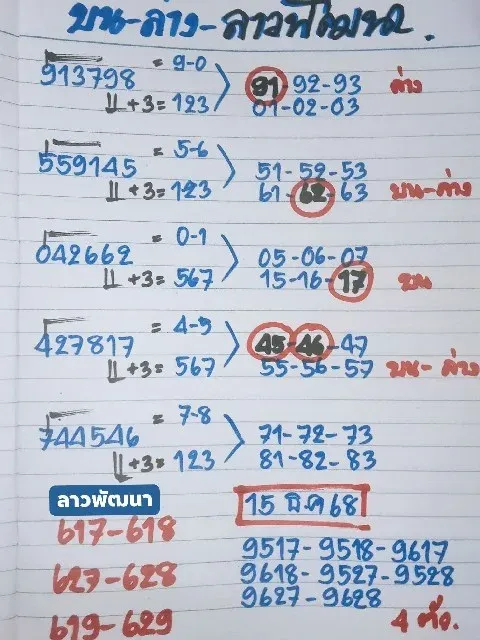 บน-ล่าง-ลาวพัฒนา.
913798 = 9-0 91-92-93 ล่าง
+3=123 01-02-03
559145 = 5-6 51-52-53
+3=123 61-62-63 บน-ล่าง
042662 = 0-1 05-06-07
+3=567 15-16-17 บน
427817 = 4-5 45-46-47
+3=567 55-56-57 บน-ล่าง
744546 = 7-8 71-72-73
+3=123 81-82-83
ลาวพัฒนา 15 ธ.ค 68
617-618 9517-9518-9617
627-628 9618-9527-9528
619-629 9627-9628
4 ตัว.